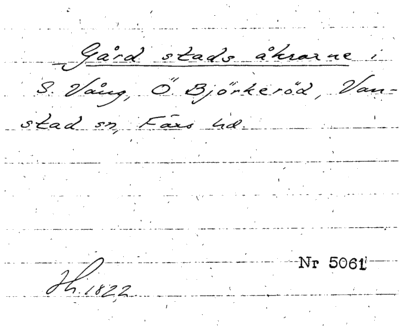 Gård stads åkrarne i
S. Vång, Ö Björkeröd, Van-
stad sn, Färs hd.
Nr 5061
Hh. 1822